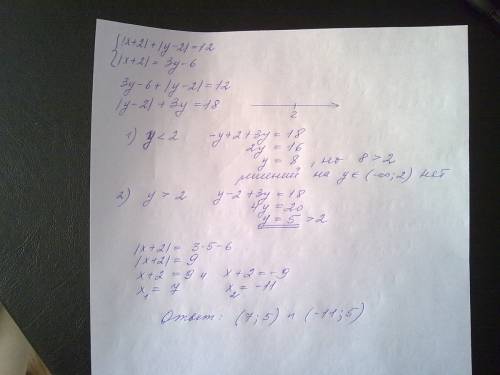 {|x+2|+|y-2|=12
|x+2|=3y-6
3y-6+|y-2|=12
|y-2|+3y=18
2
1) y<2 -y+2+3y=18
2y=16
y=8, но 8>2
решений на y∈(-∞;2) нет
2) y>2 y-2+3y=18
4y=20
y=5>2
|x+2|=3·5-6
|x+2|=9
x+2=9 и x+2=-9
x₁=7 x₂=-11
Ответ: (7;5) и (-11;5)